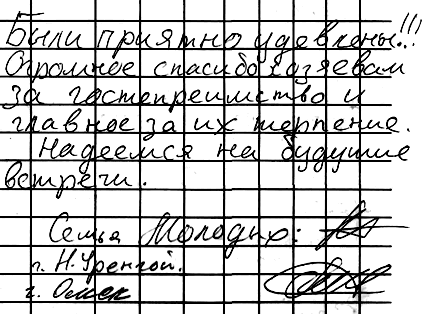 Были приятно удевлены!!!
Огромное спасибо хозяевам
за гостепреимство и
главное за их терпение.
Надеемся на будущие
встречи.
Семья Молодых:
г. Н.Уренгой.
г. Омск